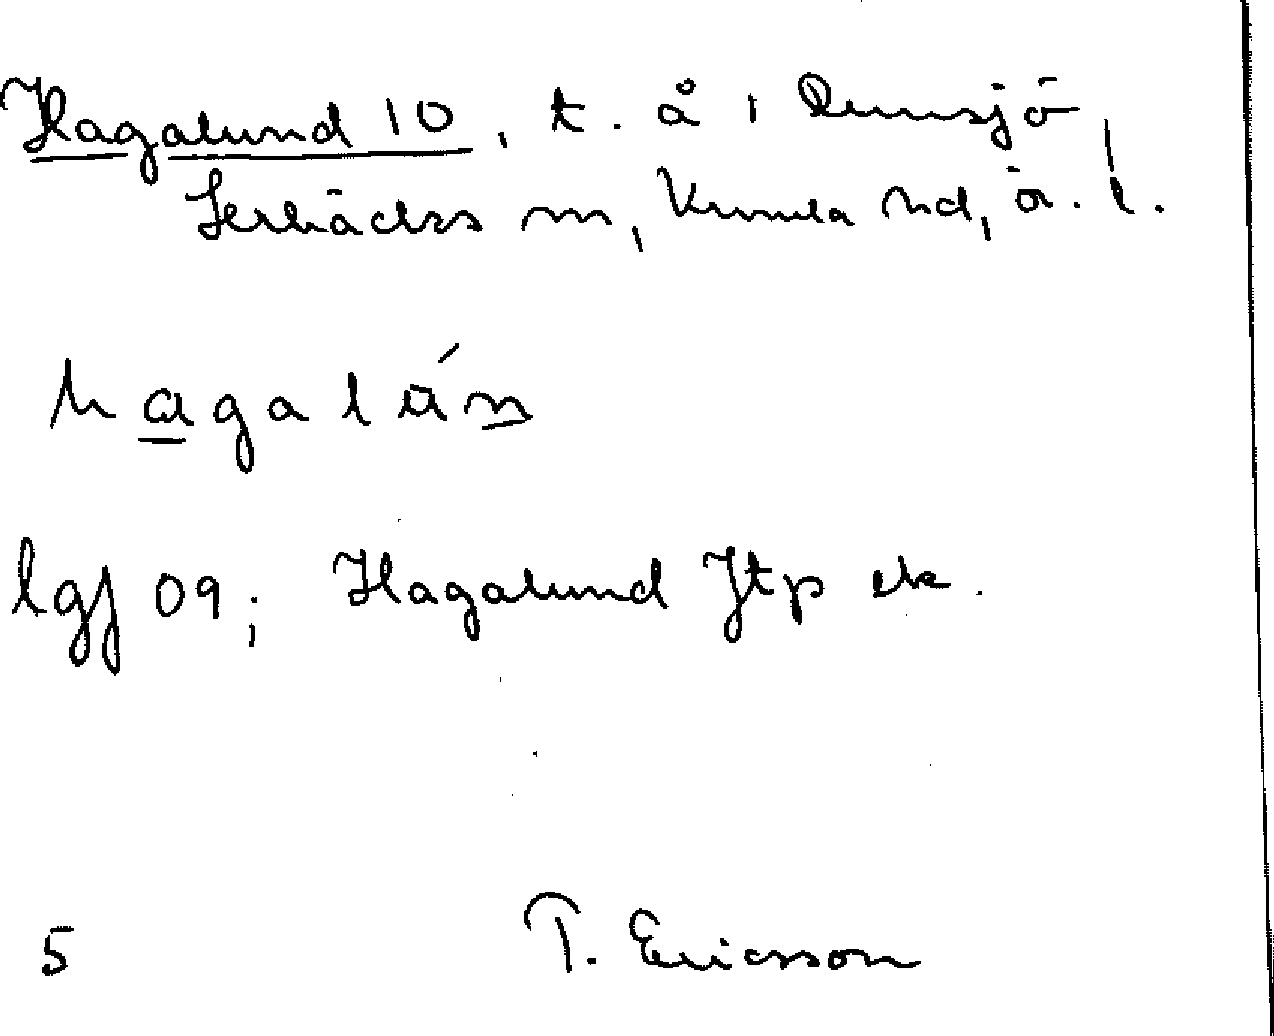 Hagalund 10, t. å 1 Dunsjö,
Lerbäcks sn, Kumla hd, ö. l.
hagalún
lgf 09; Hagalund Jtp ek.
5 T. Ericsson